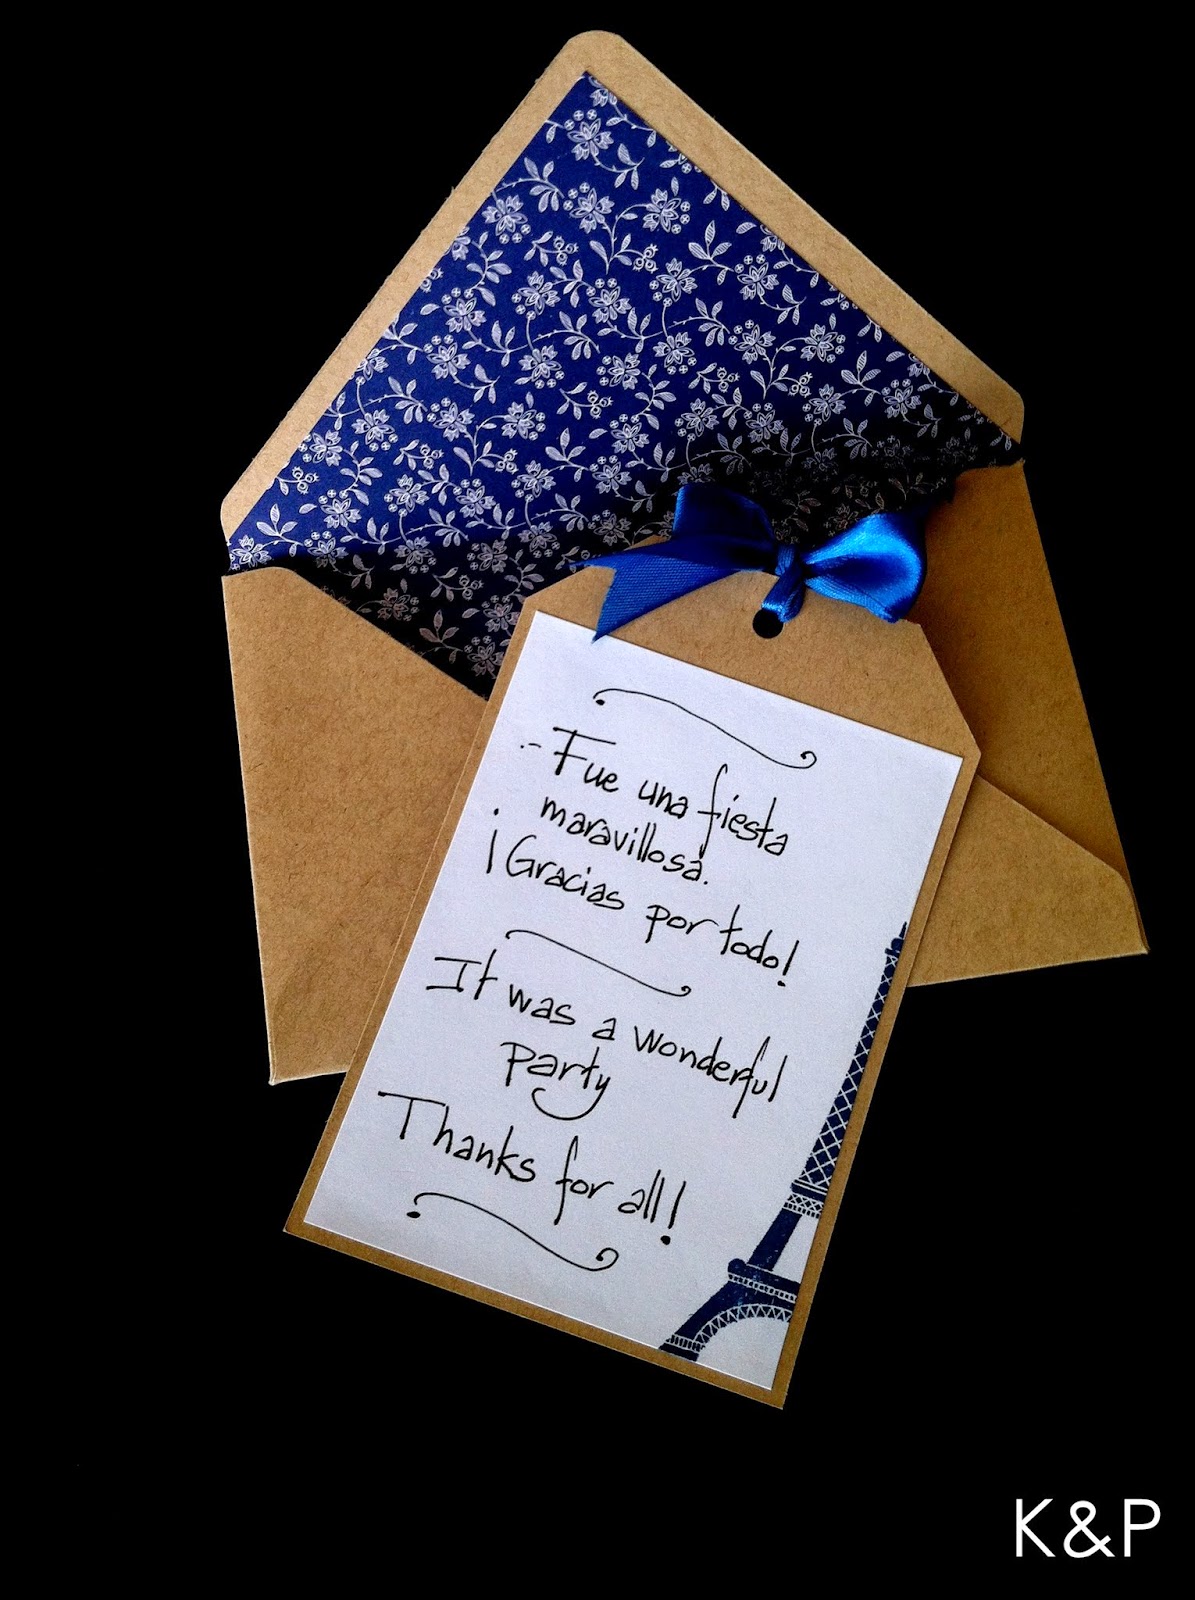 .- Fue una fiesta
maravillosa.
¡Gracias por todo!
It was a wonderful
party
Thanks for all!
K&P